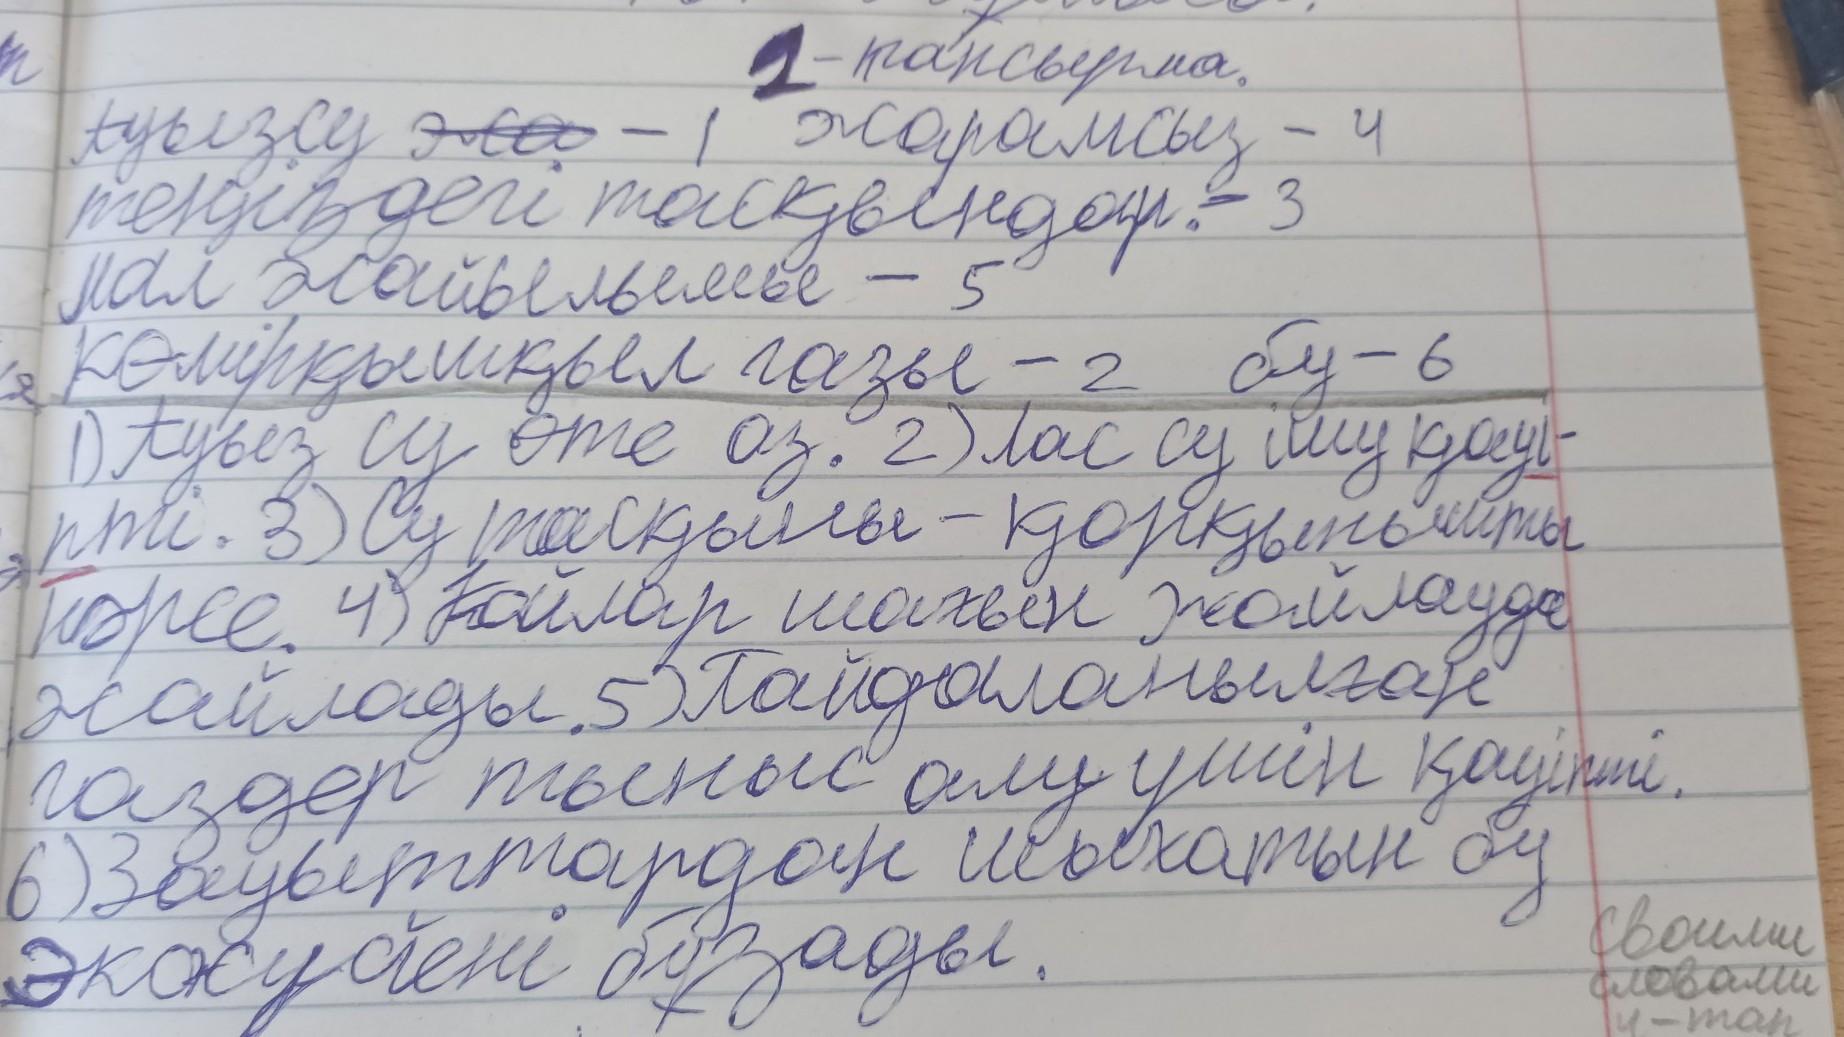 1-тапсырма.
тұщы су – 1 жарамсыз – 4
теңіздегі тасқындар. – 3
мал жайылымы – 5
көмірқышқыл газы – 2 бу – 6
1) тұщы су өте аз. 2) Лас су ішу қауі-
пті. 3) Су тасқыны – қорқынышты
нәрсе. 4) Қойлар шағын жайлауда
жайлады. 5) Пайдаланылған
газдер тыныс алу үшін қауіпті.
6) Зауыттардан шығатын бу
экожүйені бұзады.
своими
словами
4-тап